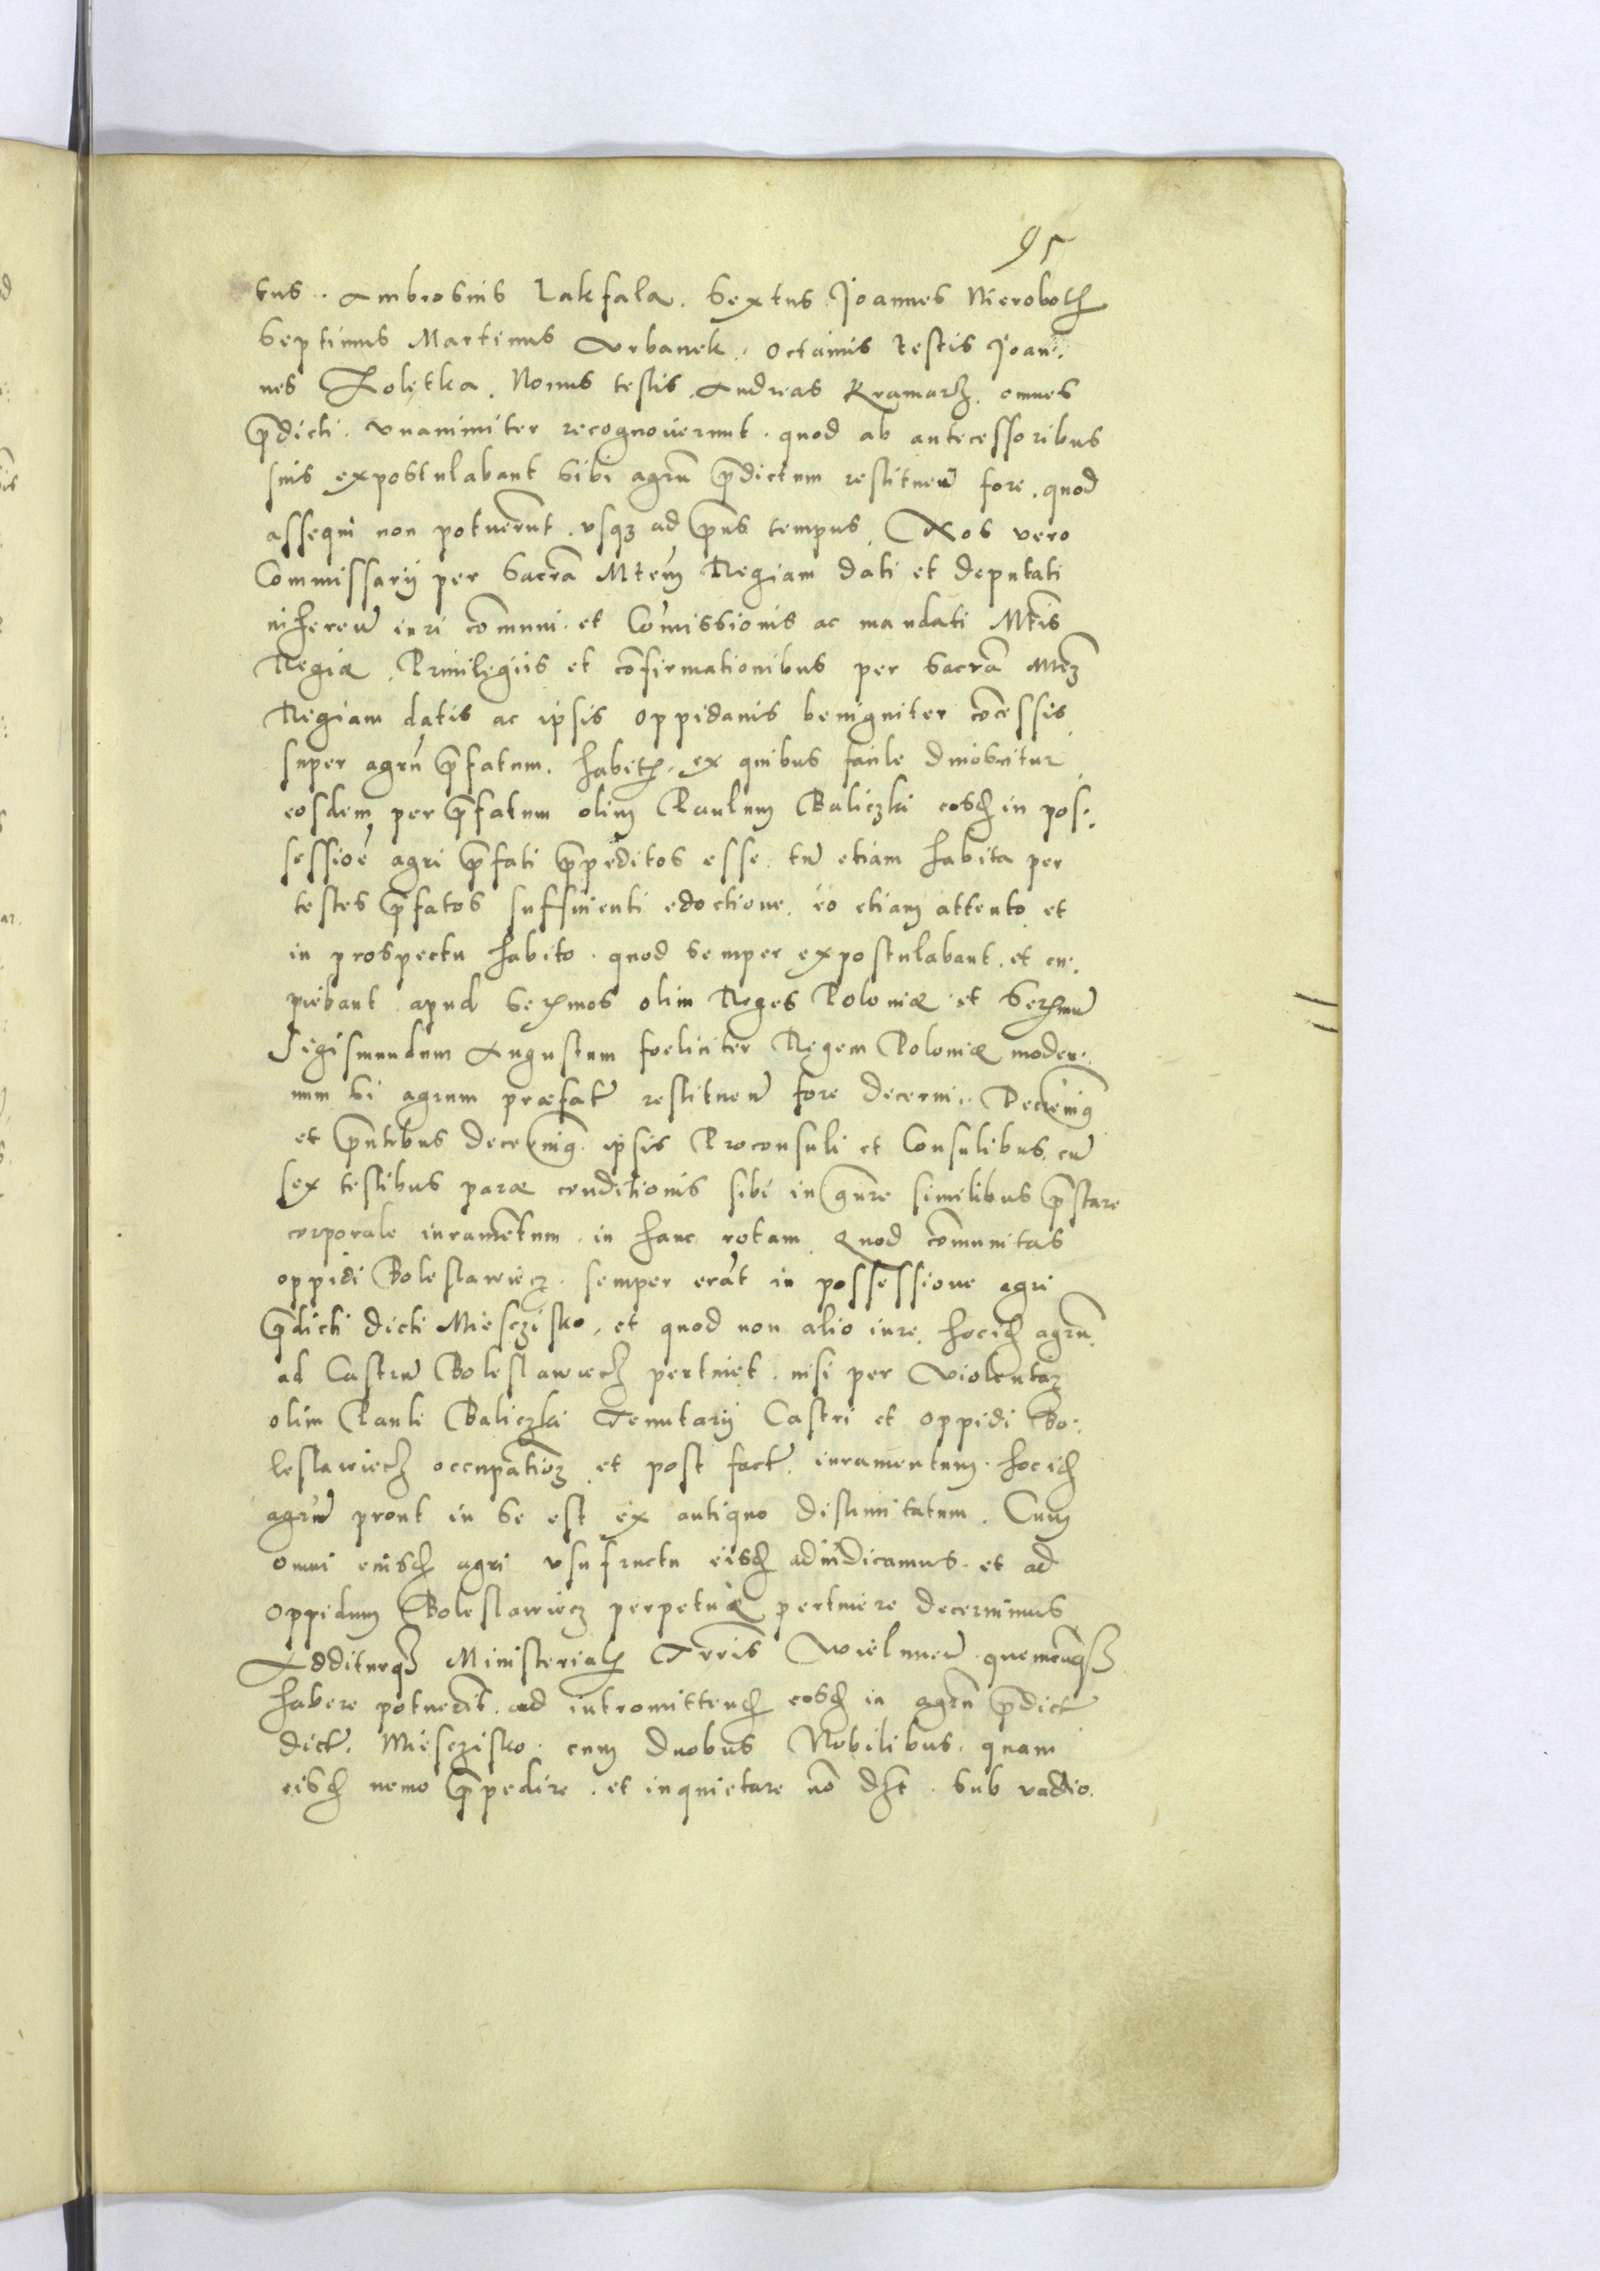 95
tus. Ambrosius Lakfala. Sextus Joannes Nieroboth
Septimus Martinus Vrbanek. Octauus testis Joan:
nes Koletka. Nonus testis Andreas Kramarz. omnes
p̄dicti. vnanimiter recognouerunt. quod ab antecessoribus
suis expostulabant sibi agrū p̄dictum restituen̄ fore. quod
assequi non potuerūt. vsq3 ad p̄ns tempus. Nos vero
Commissarij per Sacrā Mtēm Regiam dati et deputati
inheren̄ iuri cōmuni et Cōmissionis ac mandati Mtis
Regiæ. Priuilegiis et cōfirmationibus per Sacrā Mtē3
Regiam datis ac ipsis oppidanis benigniter cōcessis
super agrū p̄fatum. habit. ex quibus facile dinoscitur
eosdem per p̄fatum olim Paulum Baliczki eosd in pos:
sessioē agri p̄fati p̄peditos esse. tū etiam habita per
testes p̄fatos sufficienti edoctione. eo etiam attento et
in prospectu habito. quod semper expostulabant. et cu:
piebant apud Ser̄mos olim Reges Poloniæ et Ser̄mū
Sigismundum Augustum foeliciter Regem Poloniæ moder:
num si agrum præfat̄ restituen̄ fore decerni.
et p̄ntibus ipsis Proconsuli et Consulibus. cū
sex testibus paræ conditionis sibi in similibus p̄stare
corporale iuramētum. in hanc rotam Quod cōmunitas
oppidi Boleslawiecz. semper erāt in possessione agri
p̄dicti dicti Miesczisko. et quod non alio iure. hocid agrū
ad Castrū Boleslawiecz pertinet. nisi per violentā
olim Pauli Baliczki Tenutarij Castri et oppidi Bo:
leslawiecz occupatiō3 et post fact̄ iuramentum. hocid
agrū prout in se est ex antiquo distimitatum. Cum
omni eiusd agri vsufructu eisd adiudicamus. et ad
oppidum Boleslawiecz perpetuæ pertinere decernimus
Additurq3 Ministerial Trris Wielunen̄ quemcūq3
habere potuerīt. ad intromittend eosd in agrū p̄dict̄
dict̄. Miesczisko. cum duobus Nobilibus. quam
eisd nemo p̄pedire. et inquietare nō dbt. sub vadio.